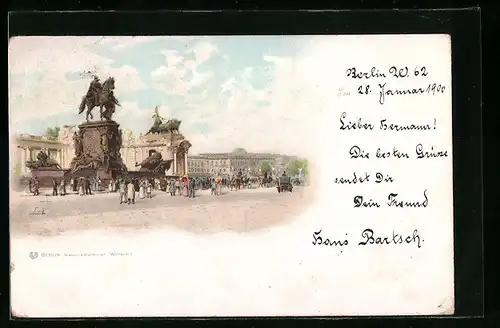 Berlin W 62
28. Januar 1900
Lieber Hermann!
Die besten Grüsse
sendet Dir
Dein Freund
Hans Bartsch.
BERLIN